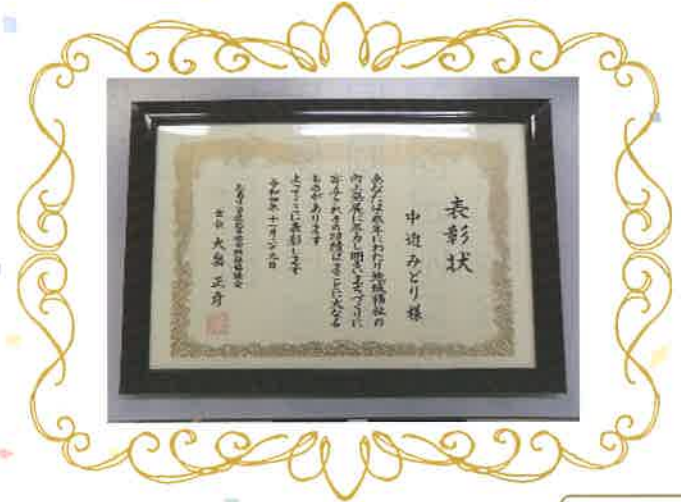 表彰状
中辻みどり様
あなたは永年にわたり地域福祉の
向上発展に尽力し明るいまちづくりに
寄与されその功績はまことに大なる
ものがあります
よってここに表彰します
令和四年十一月二十九日
会長